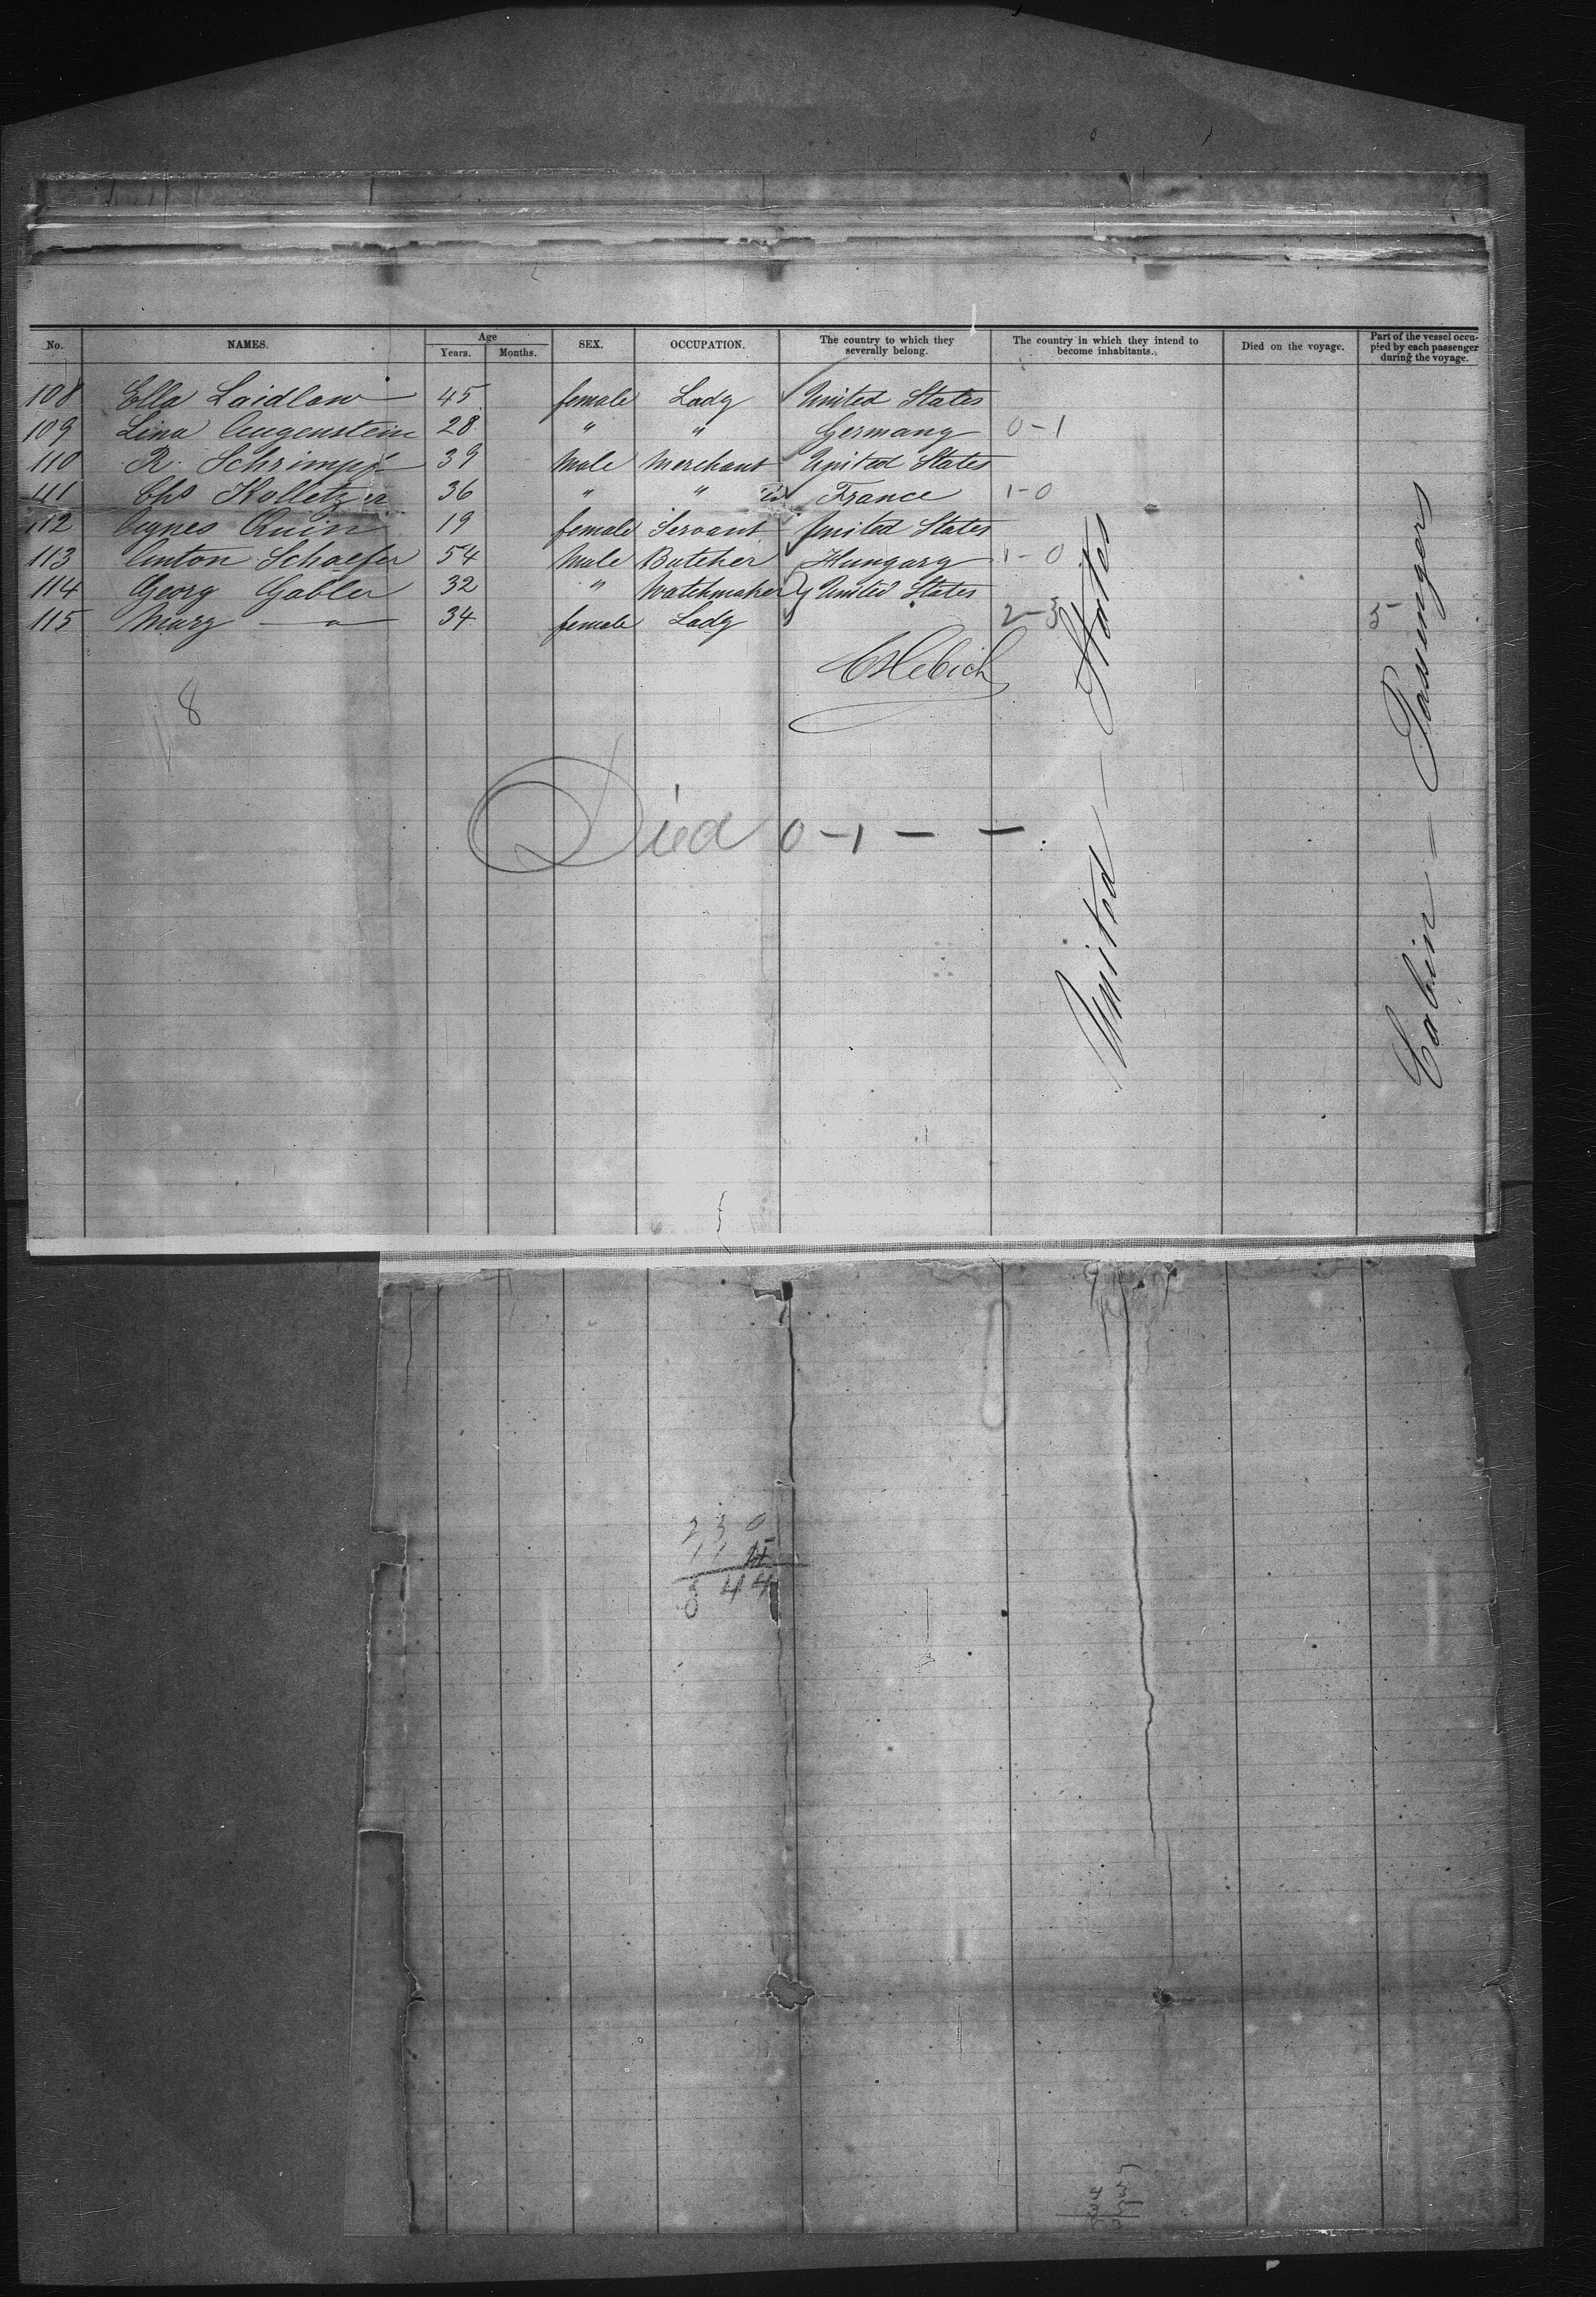 No. NAMES. Age Years. Months. SEX. OCCUPATION. The country to which they severally belong. The country in which they intend to become inhabitants. Died on the voyage. Part of the vessel occupied by each passenger during the voyage.
108 Ella Laidlaw 45 female Lady United States
109 Lina Augenstein 28 " " Germany 0-1
110 R. Schrimpf 39 Male Merchant United States
111 Chs Kolletzer 36 " " France 1-0
112 Agnes Quin 19 female Servant United States
113 Anton Schaefer 54 Male Butcher Hungary 1-0
114 Georg Gabler 32 " Watchmaker United States
115 Mary — " — 34 female Lady
2-3 5
8
Died 0-1 - -
United - States
Cabin - Passengers
230
544